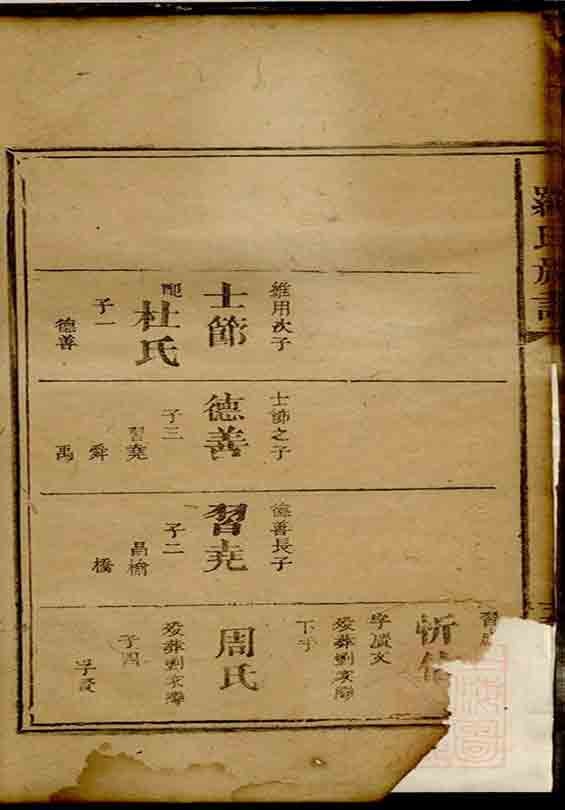 羅氏族譜
維用次子
士節
配杜氏
子一
德善
士節之子
德善
子三
習堯
舜
禹
德善長子
習堯
子二
昌榆
橋
習
忻
字廣文
歿葬劉家灣
下手
周氏
歿葬劉家灣
子四